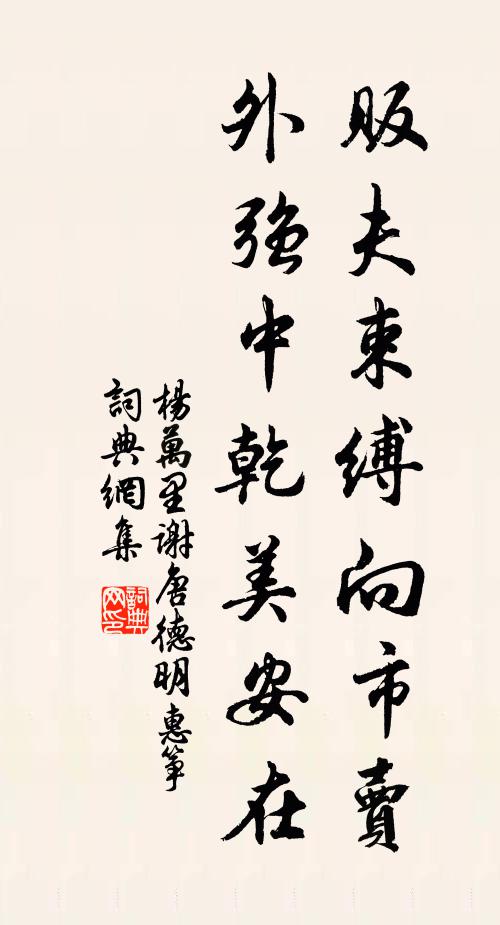 販夫束縛向市賣
外強中乾美安在
楊萬里謝唐德明惠筝
詞典網集
詞典网印